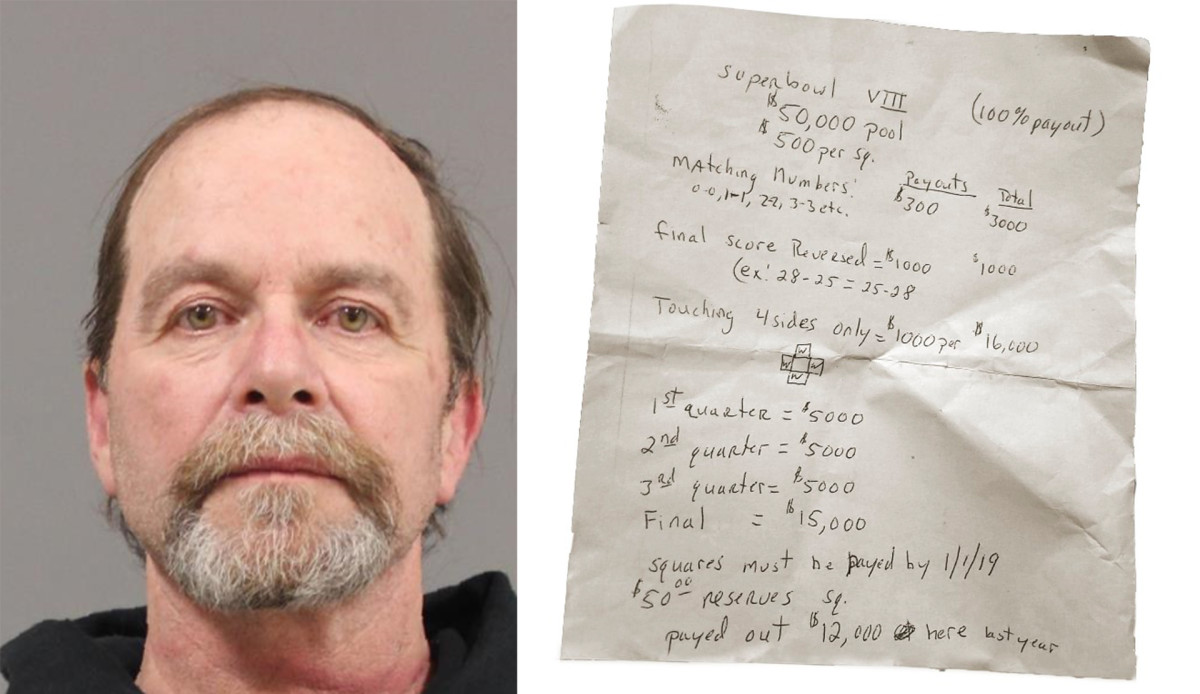 superbowl VIII (100% payout)
$50,000 pool
$500 per sq.
Matching Numbers: Payouts Total
0-0, 1-1, 2-2, 3-3 etc. $300 $3000
final score Reversed = $1000 $1000
(ex: 28-25 = 25-28
Touching 4 sides only = $1000 per $16,000
W
W W
W
1st quarter = $5000
2nd quarter = $5000
3rd quarter = $5000
Final = $15,000
squares must be payed by 1/1/19
$50.00 reserves sq.
payed out $12,000 here last year